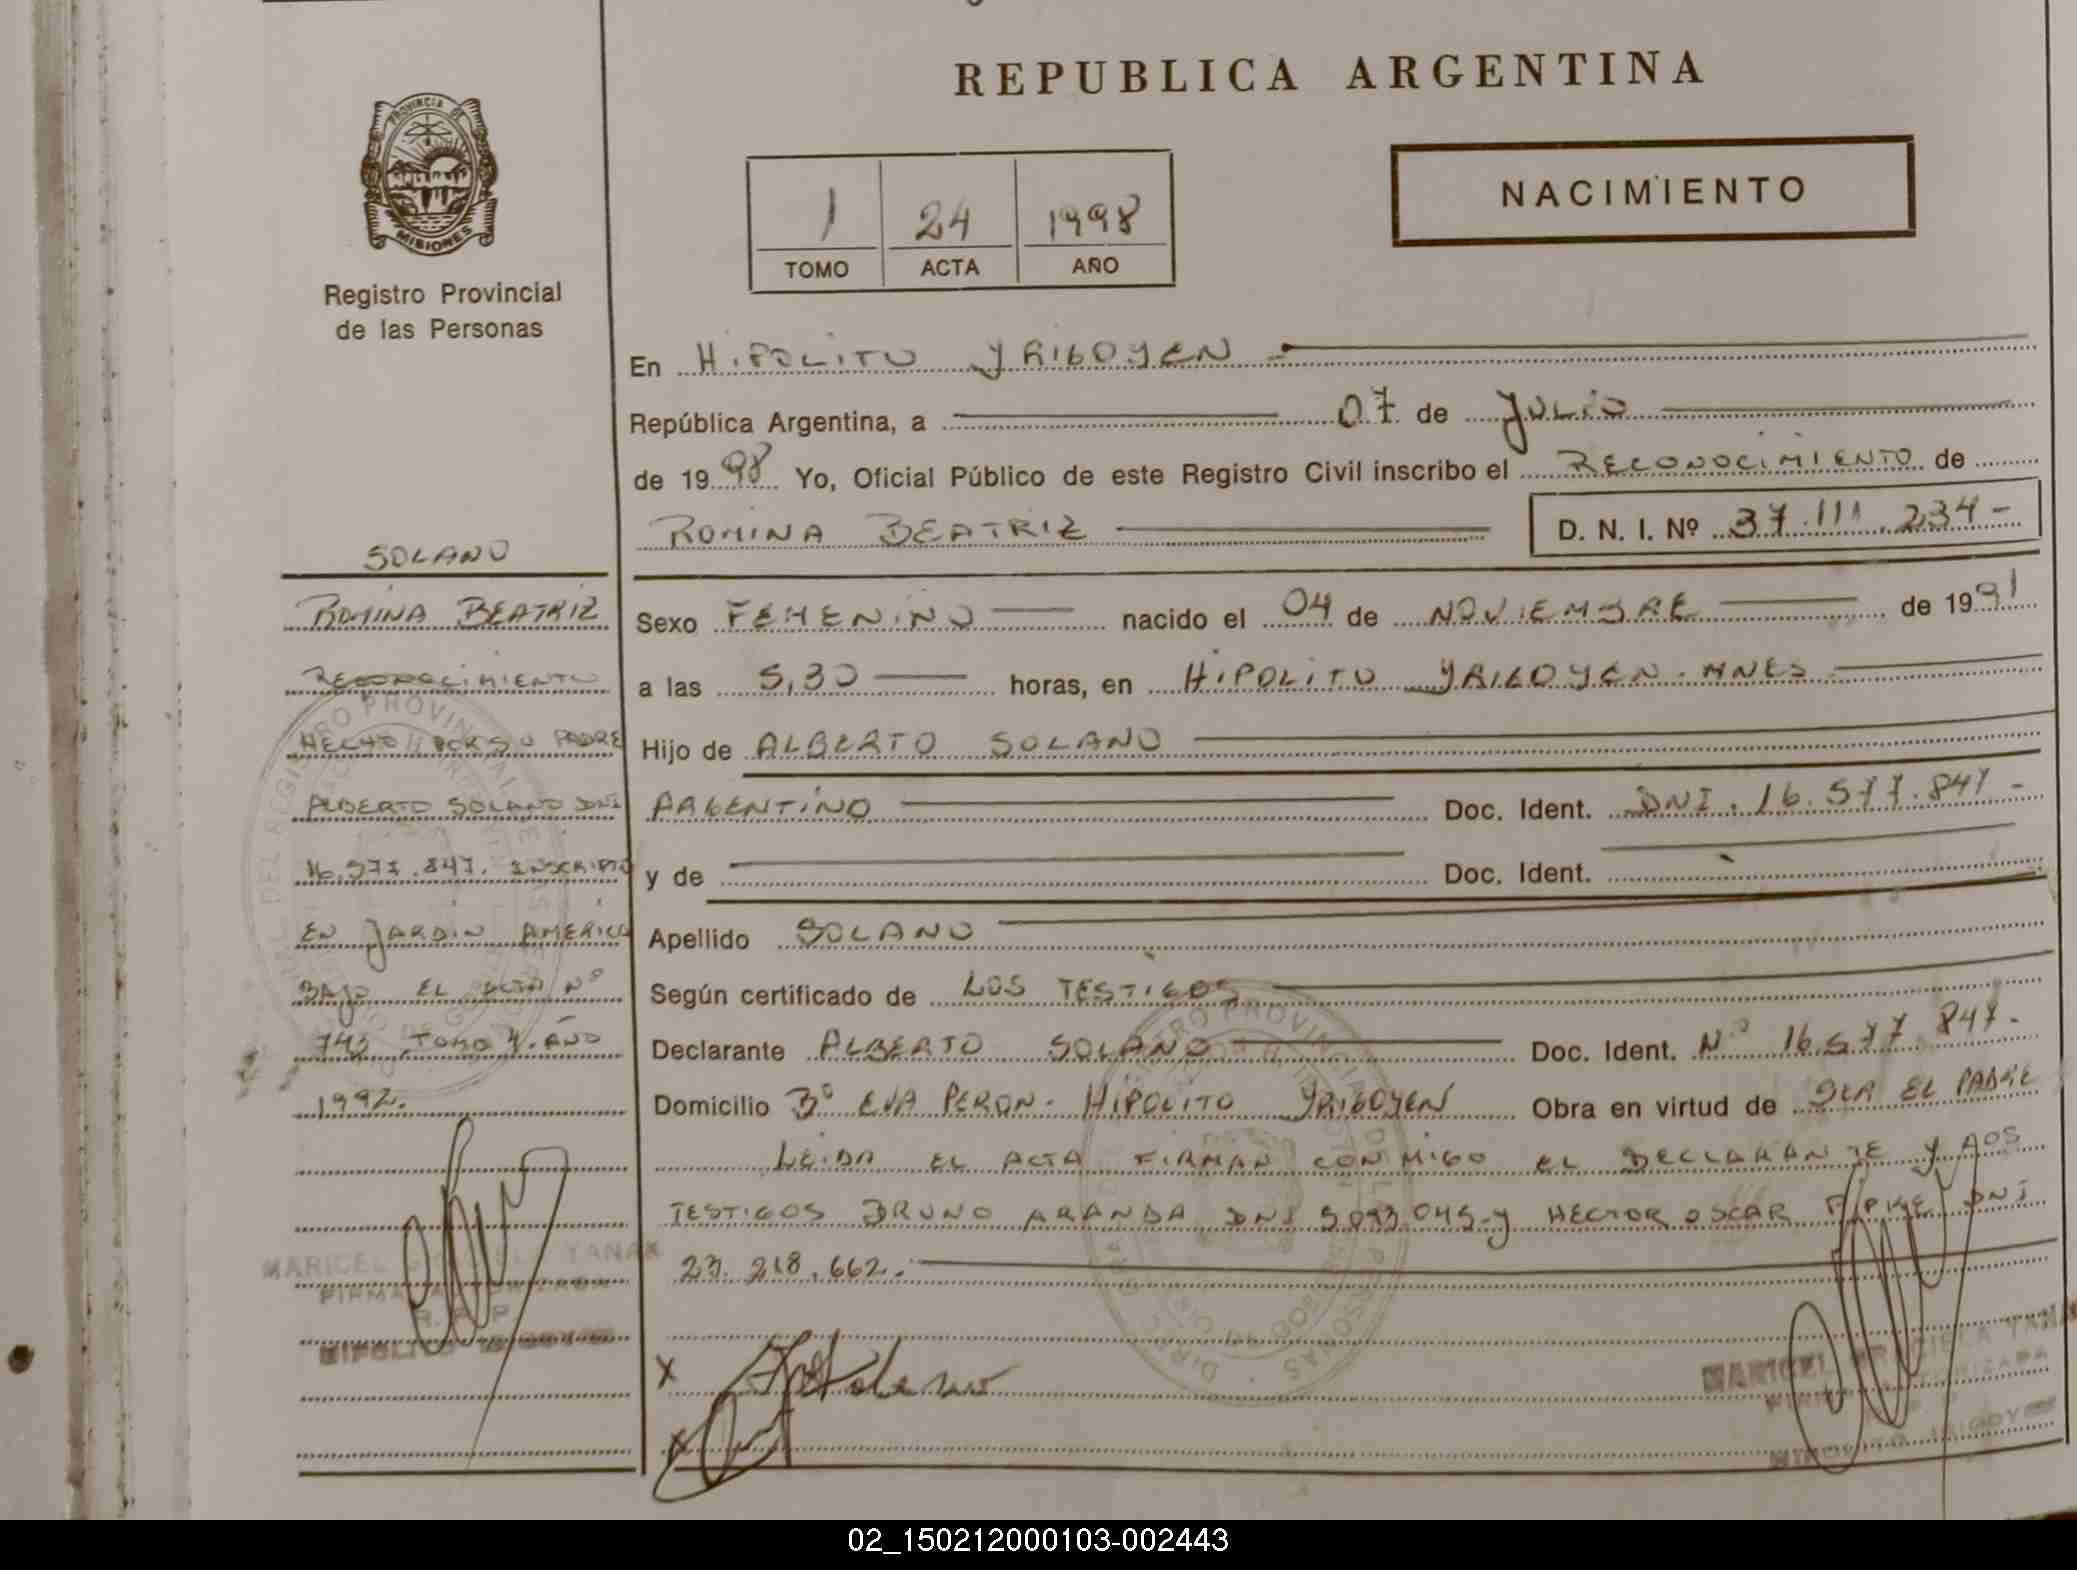 REPUBLICA ARGENTINA
PROVINCIA DE
MISIONES
Registro Provincial
de las Personas
1 24 1998
TOMO ACTA AÑO
NACIMIENTO
En HIPOLITO YRIGOYEN
República Argentina, a 07 de JULIO
de 1998 Yo, Oficial Público de este Registro Civil inscribo el RECONOCIMIENTO de
ROMINA BEATRIZ D. N. I. Nº 37.111.234-
Sexo FEMENINO nacido el 04 de NOVIEMBRE de 1991
a las 5,30 horas, en HIPOLITO YRIGOYEN. MNES
Hijo de ALBERTO SOLANO
ARGENTINO Doc. Ident. DNI. 16.577.847-
y de Doc. Ident.
Apellido SOLANO
Según certificado de LOS TESTIGOS
Declarante ALBERTO SOLANO Doc. Ident. Nº 16.577.847-
Domicilio Bº EVA PERON. HIPOLITO YRIGOYEN Obra en virtud de SER EL PADRE
LEIDA EL ACTA FIRMAN CONMIGO EL DECLARANTE Y LOS
TESTIGOS BRUNO ARANDA DNI Y HECTOR OSCAR DNI
23.218.662.
SOLANO
ROMINA BEATRIZ
RECONOCIMIENTO
HECHO POR SU PADRE
ALBERTO SOLANO DNI
16.577.847. INSCRIPTO
EN JARDIN AMERICA
BAJO EL ACTA Nº
TOMO 4. AÑO
1992.
MARICEL YANAK
HIPOLITO
X
X
MARICEL GRACIELA
HIPOLITO IRIGOYEN
02_150212000103-002443